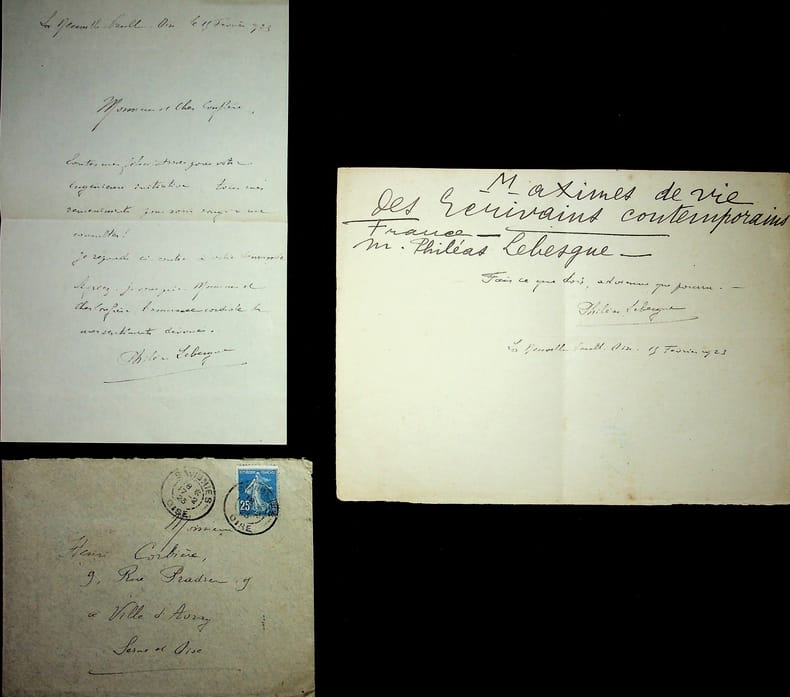 La Neuville-Vault. Oise le 15 Février 1923
Monsieur et cher Confrère,
Toutes mes félicitations pour votre
ingénieuse initiative tous mes
remerciements pour avoir songé à me
consulter!
Je réponds ci-contre à votre demande
Agréez, je vous prie, Monsieur et
cher Confrère, l'assurance cordiale de
mes sentiments dévoués.
Philéas Lebesgue
Maximes de vie
des Ecrivains contemporains
France —
M. Philéas Lebesgue —
Fais ce que dois, advienne que pourra. —
Philéas Lebesgue
La Neuville-Vault. Oise. 15 Février 1923
SAVIGNIES
OISE
25
OISE
Monsieur
Henri Corbière,
9, Rue Pradier, 9
à Ville d'Avray
Seine et Oise